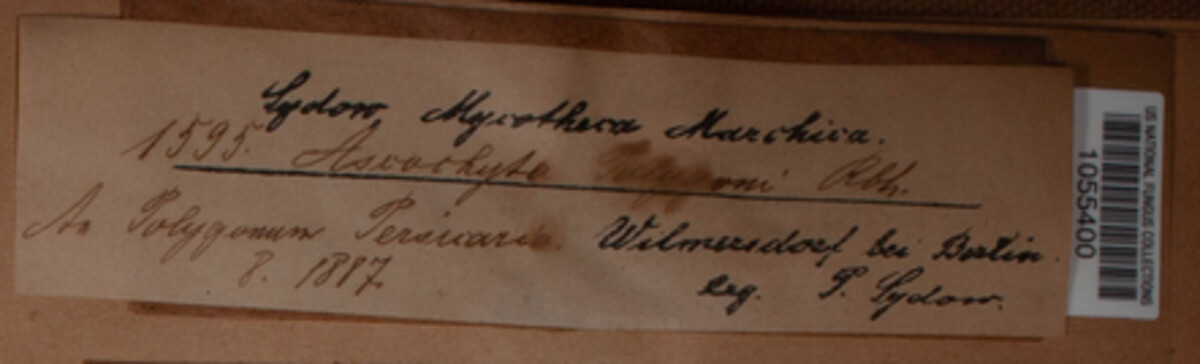 Sydow, Mycotheca Marchica.
1595. Ascochyta Polygoni Rbh.
An Polygonum Persicaria. Wilmersdorf bei Berlin.
8. 1887. leg. P. Sydow.
US NATIONAL FUNGUS COLLECTIONS
1055400